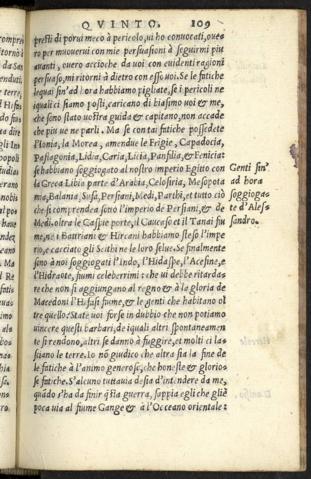 QVINTO. 109
presti di porui meco à pericolo, ui ho conuocati, oue⸗
ro per muouerui con mie persuasioni à seguirmi piu
auanti, ouero accioche da uoi con euidenti ragioni
persuaso, mi ritorni à dietro con esso uoi. Se le fatiche
lequai sin'ad hora habbiamo pigliate, se i pericoli ne
iquali ci siamo posti, caricano di biasimo uoi & me,
che sono stato uostra guida & capitano, non accade
che piu ue ne parli. Ma se con tai fatiche possedete
l'Ionia, la Morea, amendue le Frigie, Capadocia,
Paflagonia, Lidia, Caria, Licia, Panfilia, & Feniciat
se habbiamo soggiogato al nostro imperio Egitto con
la Greca Libia parte d'Arabia, Celosiria, Mesopota
mia, Balania, Susa, Persiani, Medi, Parthi, et tutto ciò
che si comprendea sotto l'imperio de Persiani, & de
Medi, oltra le Caspie porte, il Caucaso et il Tanai fiu
me, ne i Battriani & Hircani habbiamo steso l'impe
ro, e cacciato gli Scithi ne le loro selue. Se finalmente
sino à noi soggiogati l'Indo, l'Hidaspe, l'Acesine, e
l'Hidraote, fiumi celeberrimi: che ui debbe ritarda⸗
re che non si aggiungano al regno & à la gloria de
Macedoni l'Hifasi fiume, & le genti che habitano ol
tre quello? State uoi forse in dubbio che non potiamo
uincere questi barbari, de iquali altri spontaneamen
te si rendono, altri se danno à fuggire, et molti ci la⸗
sciano le terre. Io nõ giudico che altra sia la fine de
le fatiche à l'animo generoso, che honeste & glorio⸗
se fatiche. S'alcuno tuttauia desia d'intendere da me,
quãdo s'ha da finir q̃sta guerra, sappia egli che gliè
poca uia al fiume Gange & à l'Occeano orientale:
Genti sin'
ad hora
soggioga⸗
te d'Ales⸗
sandro.